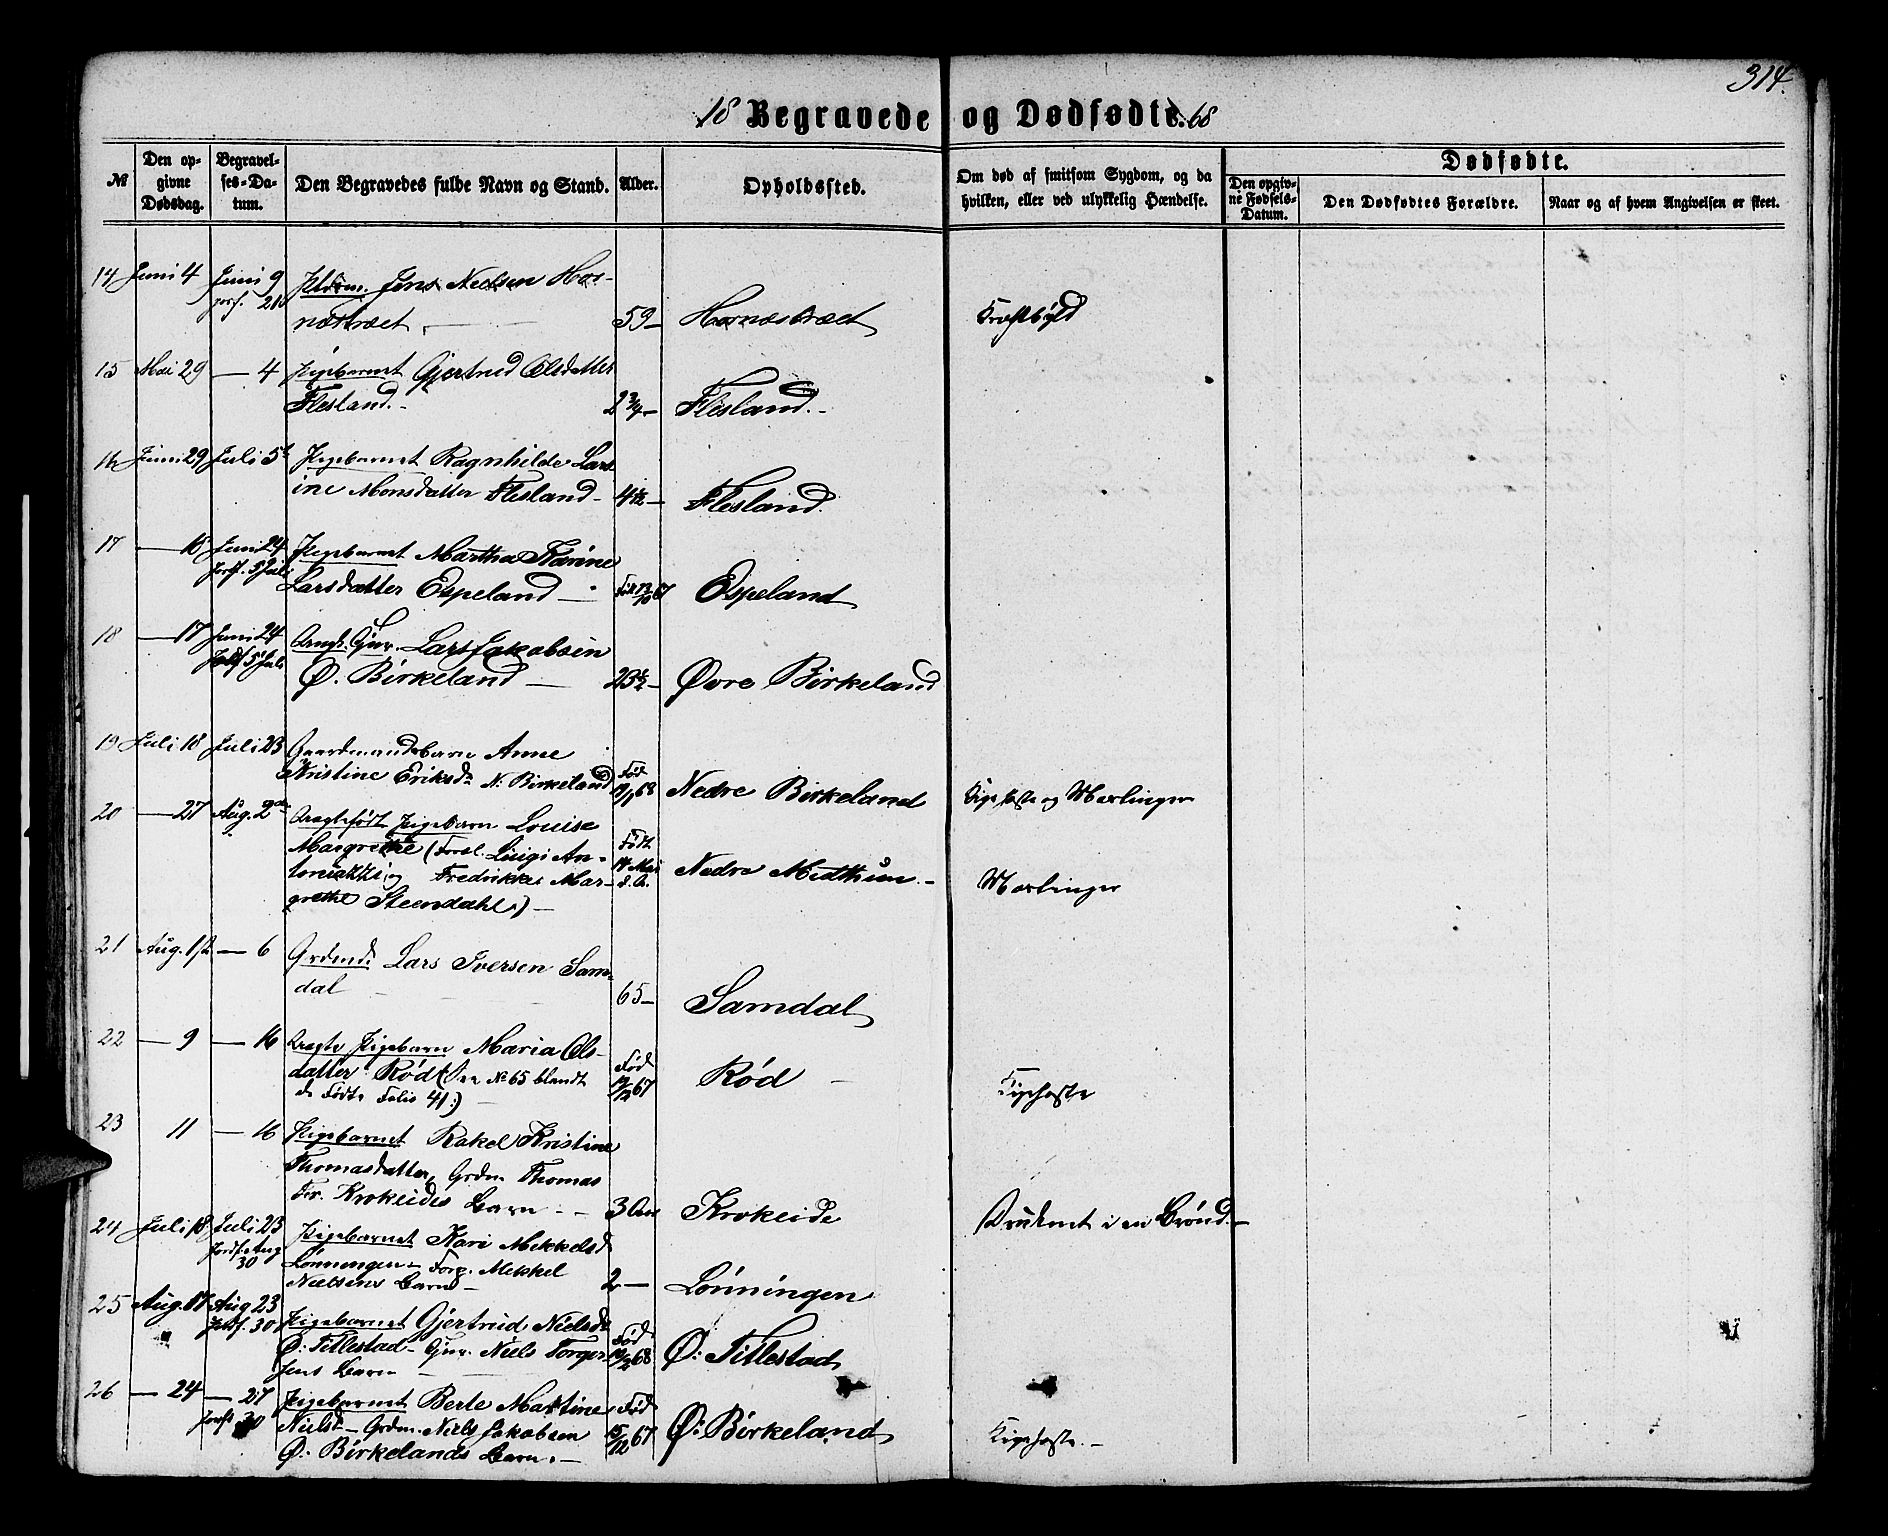 314.
18 Begravede og Dødfødte. 68
№
Den op-
givne
Dødsdag.
Begravel-
ses-Da-
tum.
Den Begravedes fulde Navn og Stand.
Alder.
Opholdssted.
Om død af smitsom Sygdom, og da
hvilken, eller ved ulykkelig Hændelse.
Dødfødte.
Den opgiv-
ne Fødsels-
Datum.
Den Dødfødtes Forældre.
Naar og af hvem Angivelsen er skeet.
14 Juni 4 Juni 9 Jens Nielsen Hor-
næstræet 59 Hornæstræet Kræftbyld
15 Mai 29 — 4 Pigebarnet Gjertrud Olsdatter
Flesland. 2 3/4 Flesland.
16 Juni 29 Juli 5t Pigebarnet Ragnhilde Lars
ine Monsdatter Flesland 4 1/2 Flesland.
17 — 16 Juni 24 Pigebarnet Martha Karine
Jordf. 5 Juli Larsdatter Espeland 67 Espeland
18 — 17 Juni 24 Lars Jakobsen
5 Juli Ø. Birkeland 23 1/2 Øvre Birkeland
19 Juli 18 Juli 23 Gaardmandsbarn Anne
Kristine Eriksd. N. Birkeland Fød 68 Nedre Birkeland Kighoste og Mæslinger
20 — 27 Aug. 2den Uægtefødt Pigebarn Louise
Margrethe (Foræl. Luigi An-
toniatti og Fredrikke Mar-
grethe Steendahl.) Født 14 Mai d. A. Nedre Midthun. Mæslinger
21 Aug. 1ste — 6 Grdmd. Lars Iversen Sam-
dal 65 Samdal
22 — 9 — 16 Uægte Pigebarn Maria Ols-
datter Rød (See No 65 blandt
de Fødte Folio 41.) Fød 67 Rød Kighoste
23 11 — 16 Pigebarnet Rakel Kristine
Thomasdatter, Grdm. Thomas
Krokeides Barn 3 Krokeide Druknet i en Brønd.
24 Juli 18 Juli 23 Pigebarnet Kari Mikkelsd
Jordf. Aug 30 Lønningen Mikkel
Nielsens Barn 2 Lønningen
25 Aug. 17 Aug 23 Pigebarnet Gjertrud Nielsd.
Jordf. 30 Ø. Titlestad Niels Torger-
sens Barn Fød 68 Ø. Titlestad
26 — 24 — 27 Pigebarnet Berte Martine
Jordf. 30 Nielsd. Grdm. Niels Jakobsen
Ø. Birkelands Barn. Fød 15/12 67 Ø. Birkeland Kighoste.